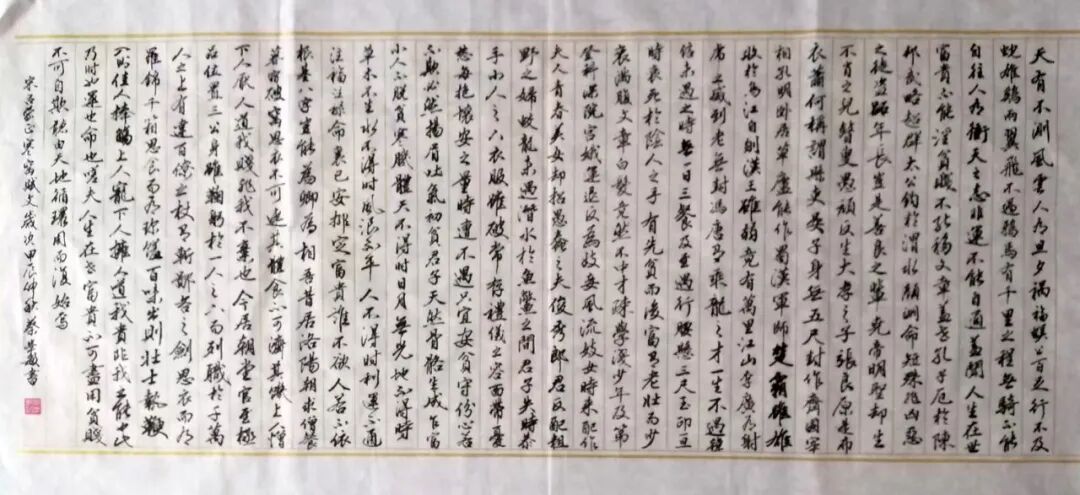 天有不測風雲人有旦夕禍福蜈蚣百足行不及
蛇雄鷄兩翼飛不過鴉馬有千里之程無騎不能
自往人有衝天之志非運不能自通蓋聞人生在世
富貴不能淫貧賤不能移文章蓋世孔子厄於陳
邦武略超群太公釣於渭水顏淵命短殊非凶惡
之徒盜跖年長豈是善良之輩堯帝明聖却生
不肖之兒瞽叟愚頑反生大孝之子張良原是布
衣蕭何稱謂縣吏晏子身無五尺封作齊國宰
相孔明卧居草廬能作蜀漢軍師楚霸雖雄
敗於烏江自刎漢王雖弱竟有萬里江山李廣有射
虎之威到老無封馮唐有乘龍之才一生不遇韓
信未遇之時無一日三餐及至遇行腰懸三尺玉印一旦
時衰死於陰人之手有先貧而後富有老壯而少
衰滿腹文章白髮竟然不中才疎學淺少年及第
登科深院宮娥運退反為妓妾風流妓女時來配作
夫人青春美女却招愚蠢之夫俊秀郎君反配粗
野之婦蛟龍未遇潛水於魚鱉之間君子失時拱
手小人之下衣服雖破常存禮儀之容面帶憂
愁每抱懷安之量時遭不遇只宜安貧守份心若
不欺必然揚眉吐氣初貧君子天然骨骼生成乍富
小人不脫貧寒肌體天不得時日月無光地不得時
草木不生水不得時風浪不平人不得時利運不通
注福注祿命裏已安排定富貴誰不欲人若不依
根基八字豈能為卿為相吾昔居洛陽朝求僧餐
暮宿破窯思衣不可遮其體食不可濟其饑上人憎
下人厭人道我賤非我不棄也今居朝堂官至極
品位置三公身雖鞠躬於一人之下而列職於千萬
人之上有撻百僚之杖有斬鄙吝之劍思衣而有
羅錦千箱思食而有珍饈百味出則壯士執鞭
入則佳人捧觴上人寵下人擁人道我貴非我之能也此
乃時也運也命也嗟夫人生在世富貴不可盡用貧賤
不可自欺聽由天地循環周而復始焉
宋呂蒙正寒窯賦文歲次甲辰仲秋蔡書